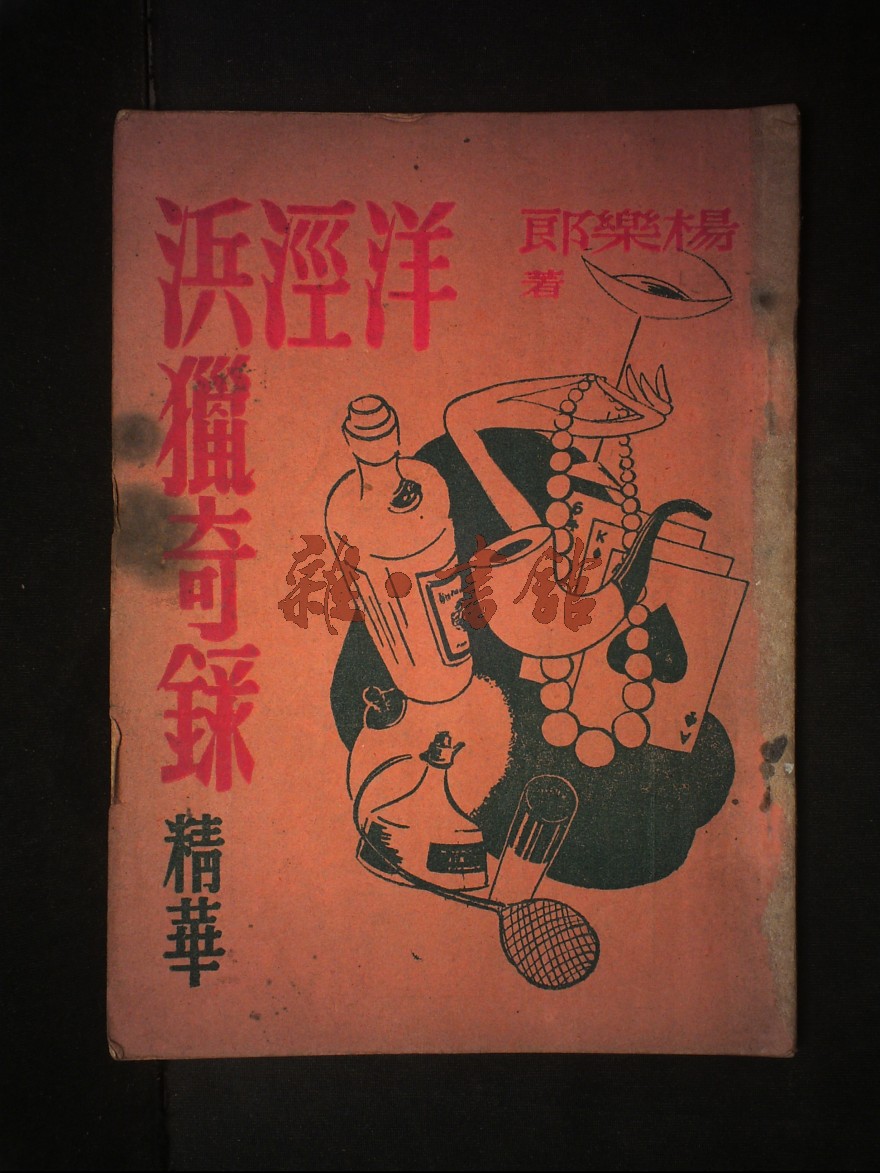 楊樂郎
著
洋涇浜
獵奇錄
精華
6
K
A
雜·書舘